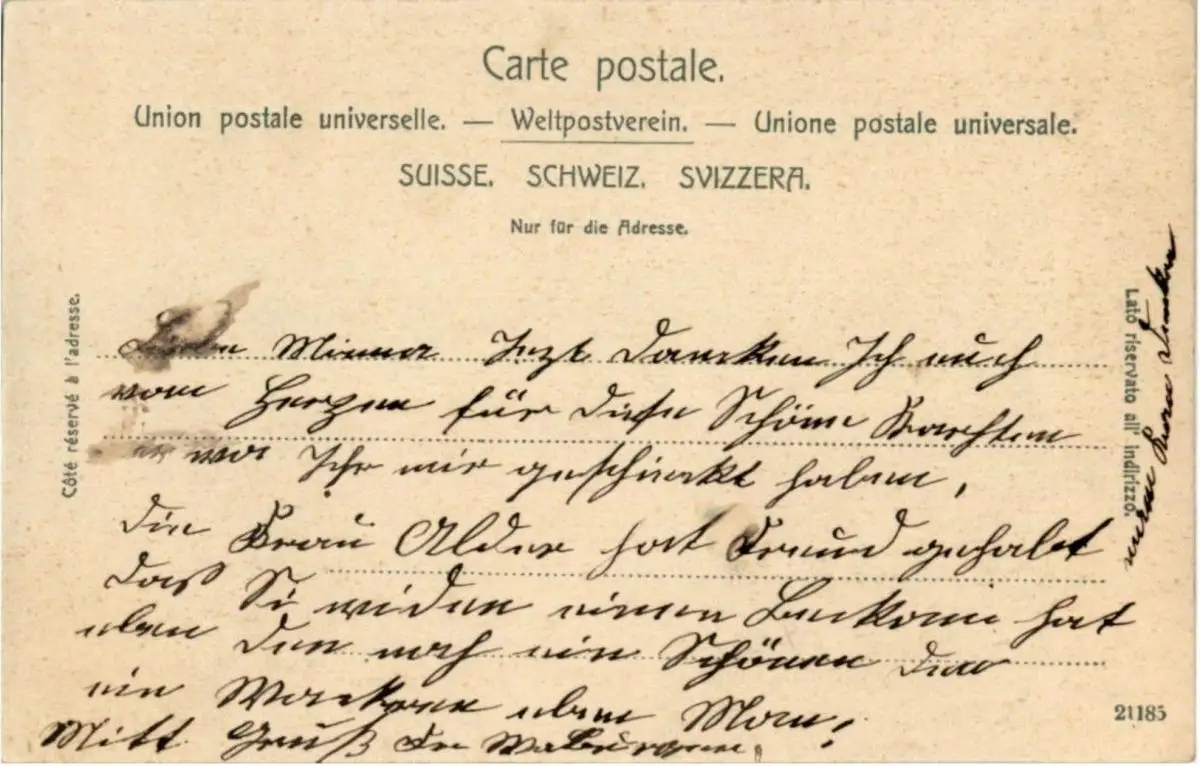 Carte postale.
Union postale universelle. — Weltpostverein. — Unione postale universale.
SUISSE. SCHWEIZ. SVIZZERA.
Nur für die Adresse.
Côté réservé à l'adresse.
Lato riservato all' indirizzo.
Minna Jezt Dancken Ich euch
vom Herzen für diese Schöne
Ihr mir geschinckt haben,
Die Frau Alder hat Freud gehabt
Daß Si wider einen hat
eben den noch ein Schönen
ein Wackern eben Man!
Mitt Gruß
21185